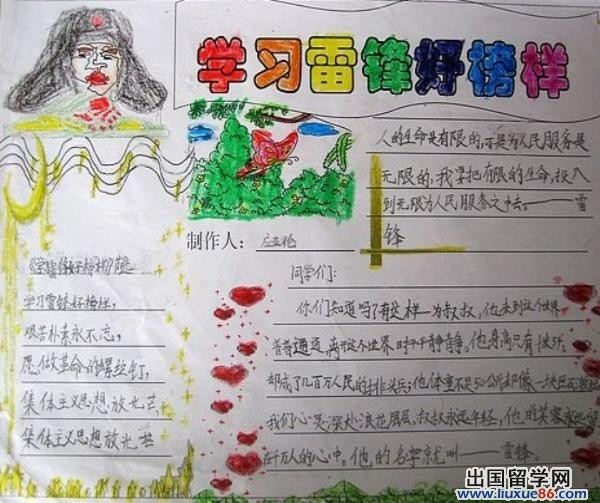 学习雷锋好榜样
人的生命是有限的,可是为人民服务是
无限的,我要把有限的生命,投入
到无限为人民服务之中去。——雷
锋
制作人:
《学习雷锋好榜样》
学习雷锋好榜样,
艰苦朴素永不忘,
愿做革命的螺丝钉,
集体主义思想放光芒,
集体主义思想放光芒
同学们:
你们知道吗?有这样一为叔叔,他来到这个世界
普普通通,离开这个世界时平平静静。他身高只有
却成了几百万人民的排头兵;他体重不足50公斤却像一块巨
我们心灵深处浪花层层。叔叔永远年轻,他的笑容永远留
在千万人的心中。他的名字就叫——雷锋。
出国留学网
www.liuxue86.com